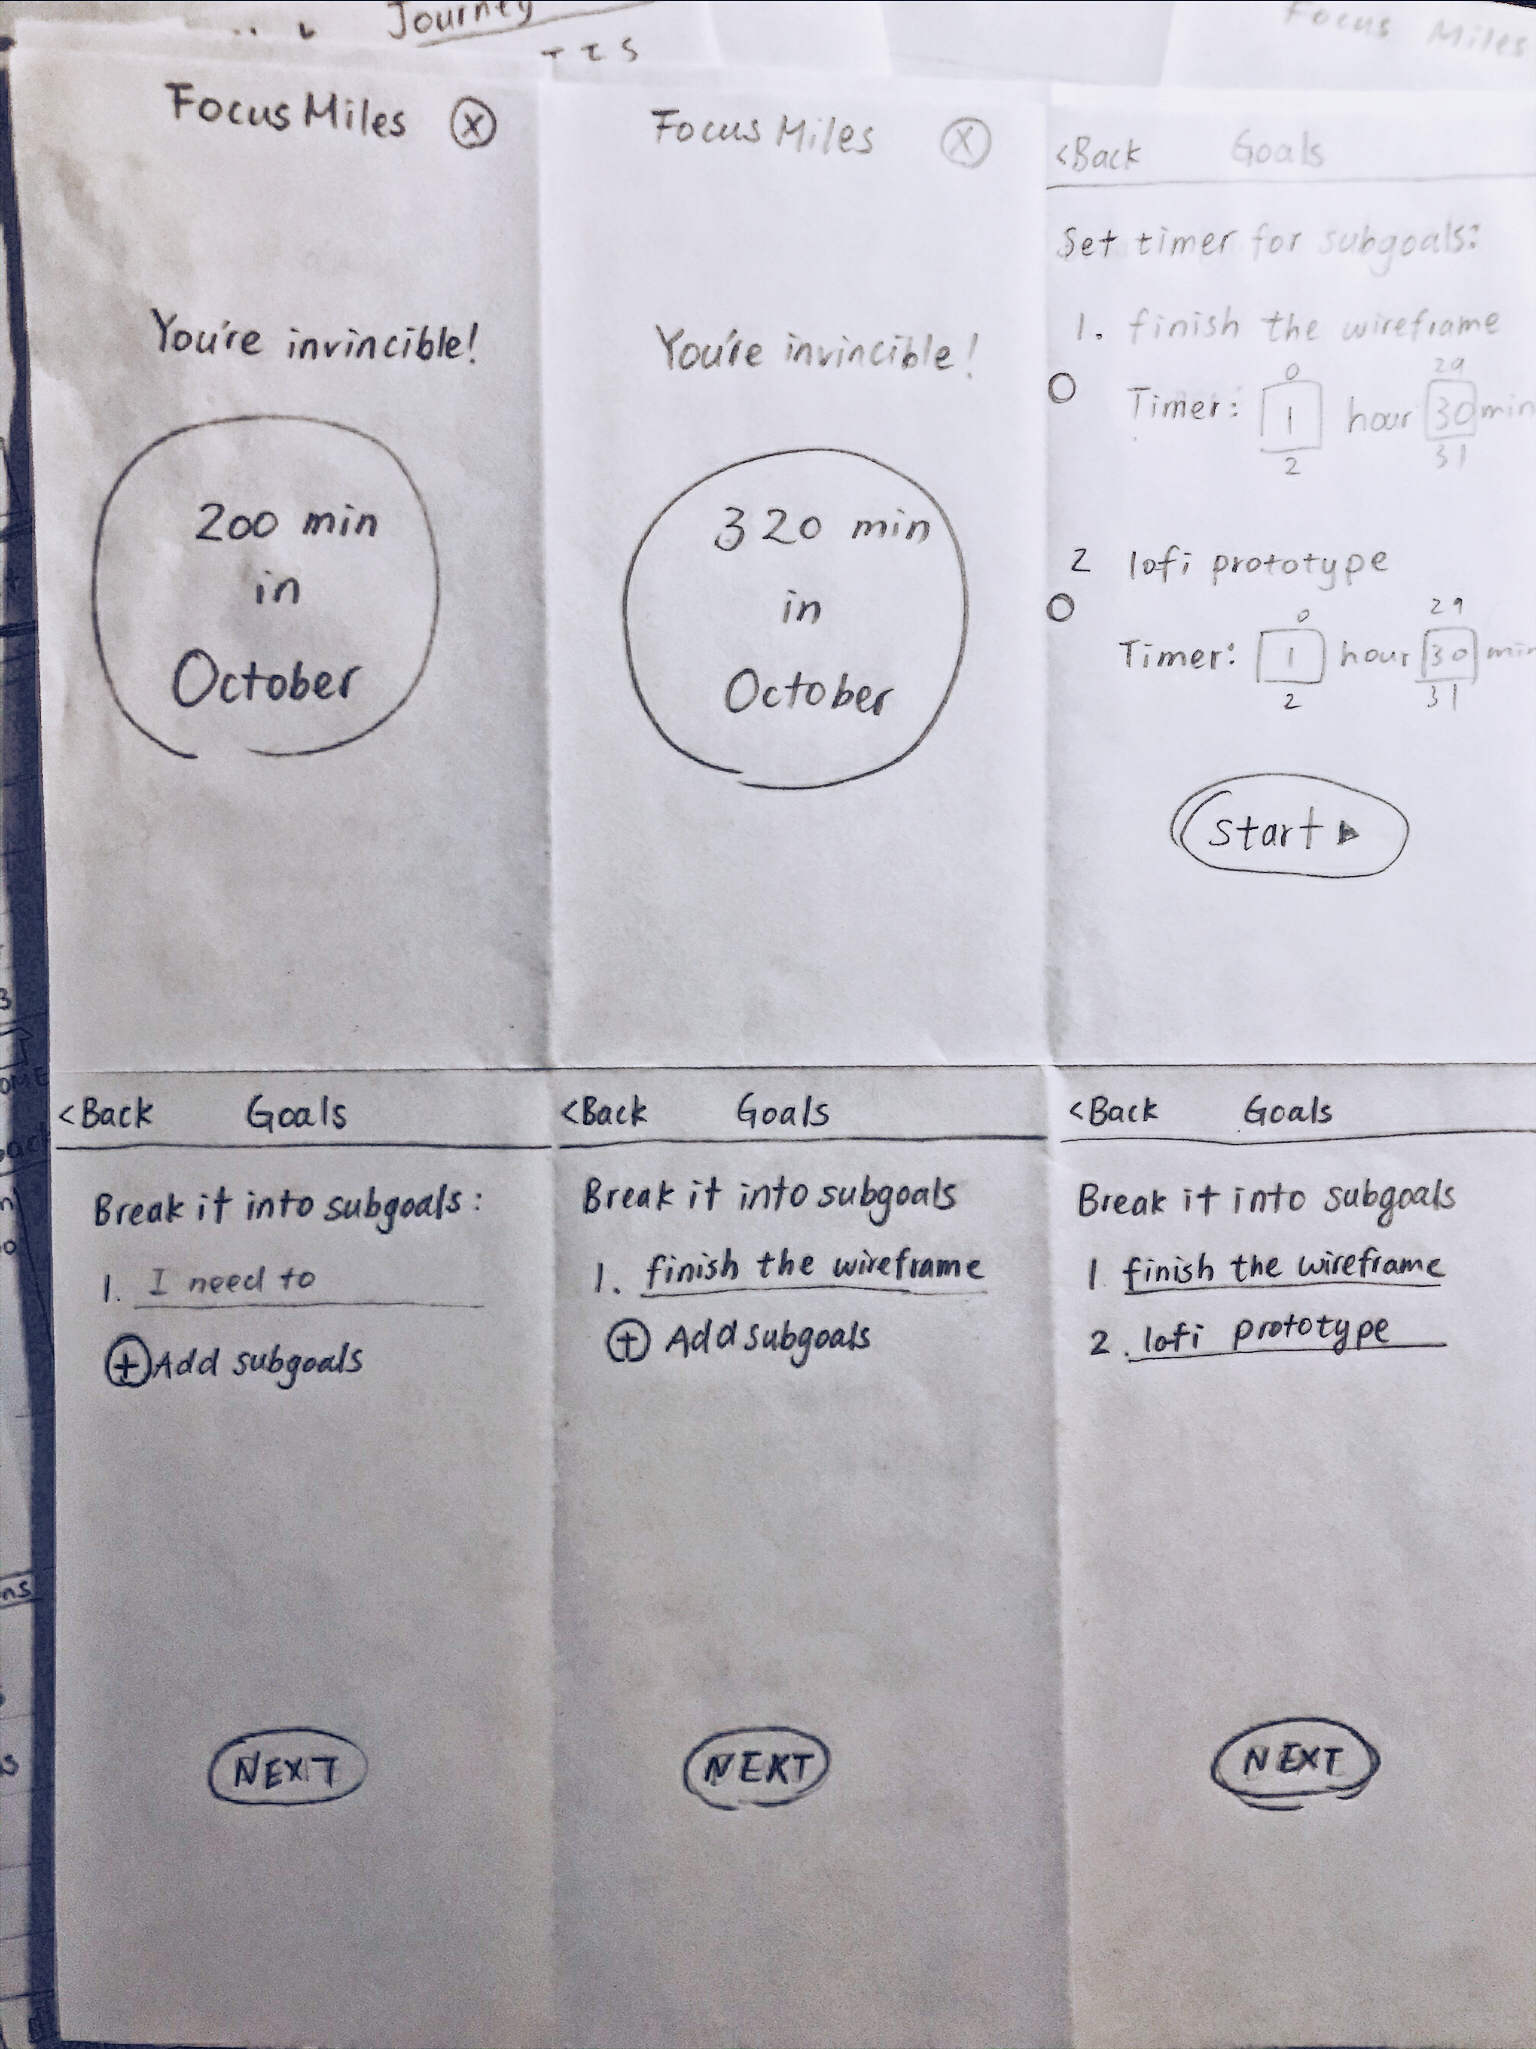 Journey
Focus Miles
Focus Miles X
You're invincible!
200 min
in
October
Focus Miles X
You're invincible!
320 min
in
October
<Back Goals
Set timer for subgoals:
1. finish the wireframe
0 29
Timer: 1 hour 30 min
2 31
2 lofi prototype
0 29
Timer: 1 hour 30 min
2 31
Start
<Back Goals
Break it into subgoals:
1. I need to
+ Add subgoals
NEXT
<Back Goals
Break it into subgoals
1. finish the wireframe
+ Add subgoals
NEXT
<Back Goals
Break it into subgoals
1 finish the wireframe
2. lofi prototype
NEXT